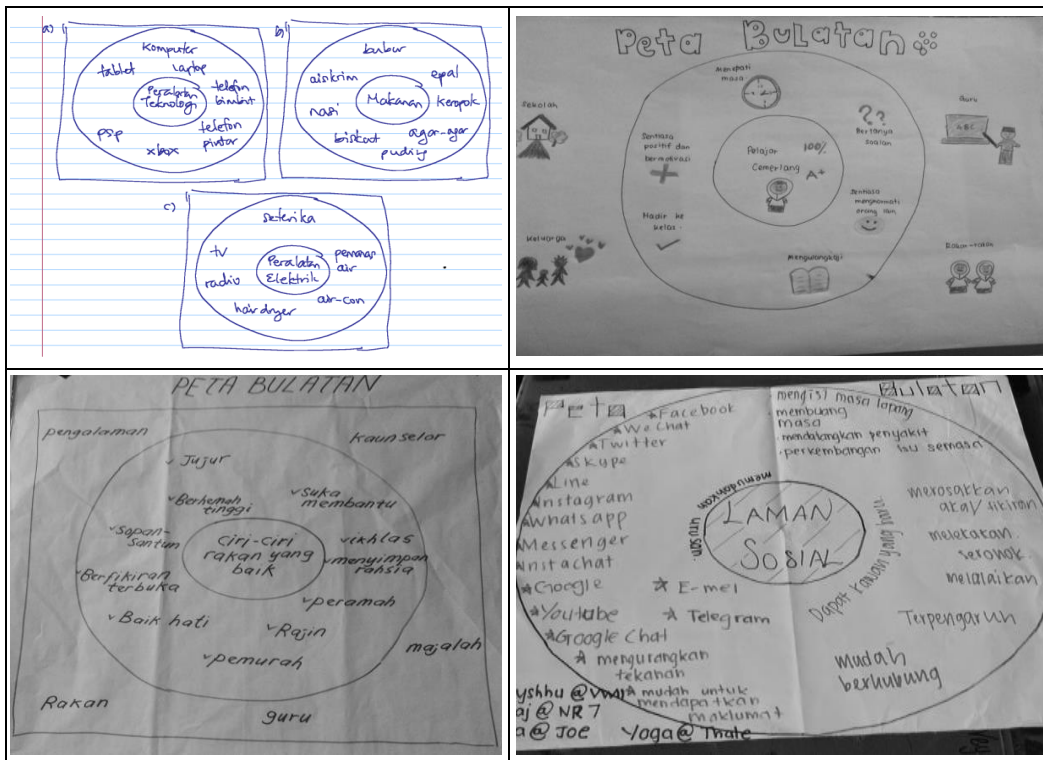 a)
Komputer
tablet
laptop
Peralatan
Teknologi
telefon
bimbit
psp
telefon
pintar
xbox
b)
bubur
aiskrim
epal
Makanan
keropok
nasi
biskut
agar-agar
puding
c)
seterika
tv
Peralatan
Elektrik
pemanas
air
radio
air-con
hairdryer
Peta Bulatan
Menepati
masa
Sekolah
Guru
ABC
??
Bertanya
soalan
Sentiasa
positif dan
bermotivasi
Pelajar
100%
Cemerlang
A+
Sentiasa
menghormati
orang lain
Hadir ke
kelas.
Keluarga
Mengulangkaji
Rakan-rakan
PETA BULATAN
pengalaman
kaunselor
Jujur
Berhemah
tinggi
suka
membantu
Sopan-
Santun
Ciri-Ciri
rakan yang
baik
ikhlas
menyimpan
rahsia
Berfikiran
terbuka
peramah
Baik hati
Rajin
pemurah
majalah
Rakan
guru
Peta Bulatan
Facebook
We Chat
Twitter
Skype
Line
Instagram
Whatsapp
Messenger
Instachat
Google
Youtube
Google Chat
mengurangkan
tekanan
mudah untuk
mendapatkan
maklumat
E-mel
Telegram
mengisi masa lapang
membuang
masa
mendatangkan penyakit
perkembangan isu semasa
memudahkan
urusan.
LAMAN
SOSIAL
Dapat rawan yang baru
merosakkan
akal fikiran
melekakan
seronok
melalaikan
Terpengaruh
mudah
berhubung
yshhu @
aj @ NR 7
a @ JOE
Yoga @ Thate